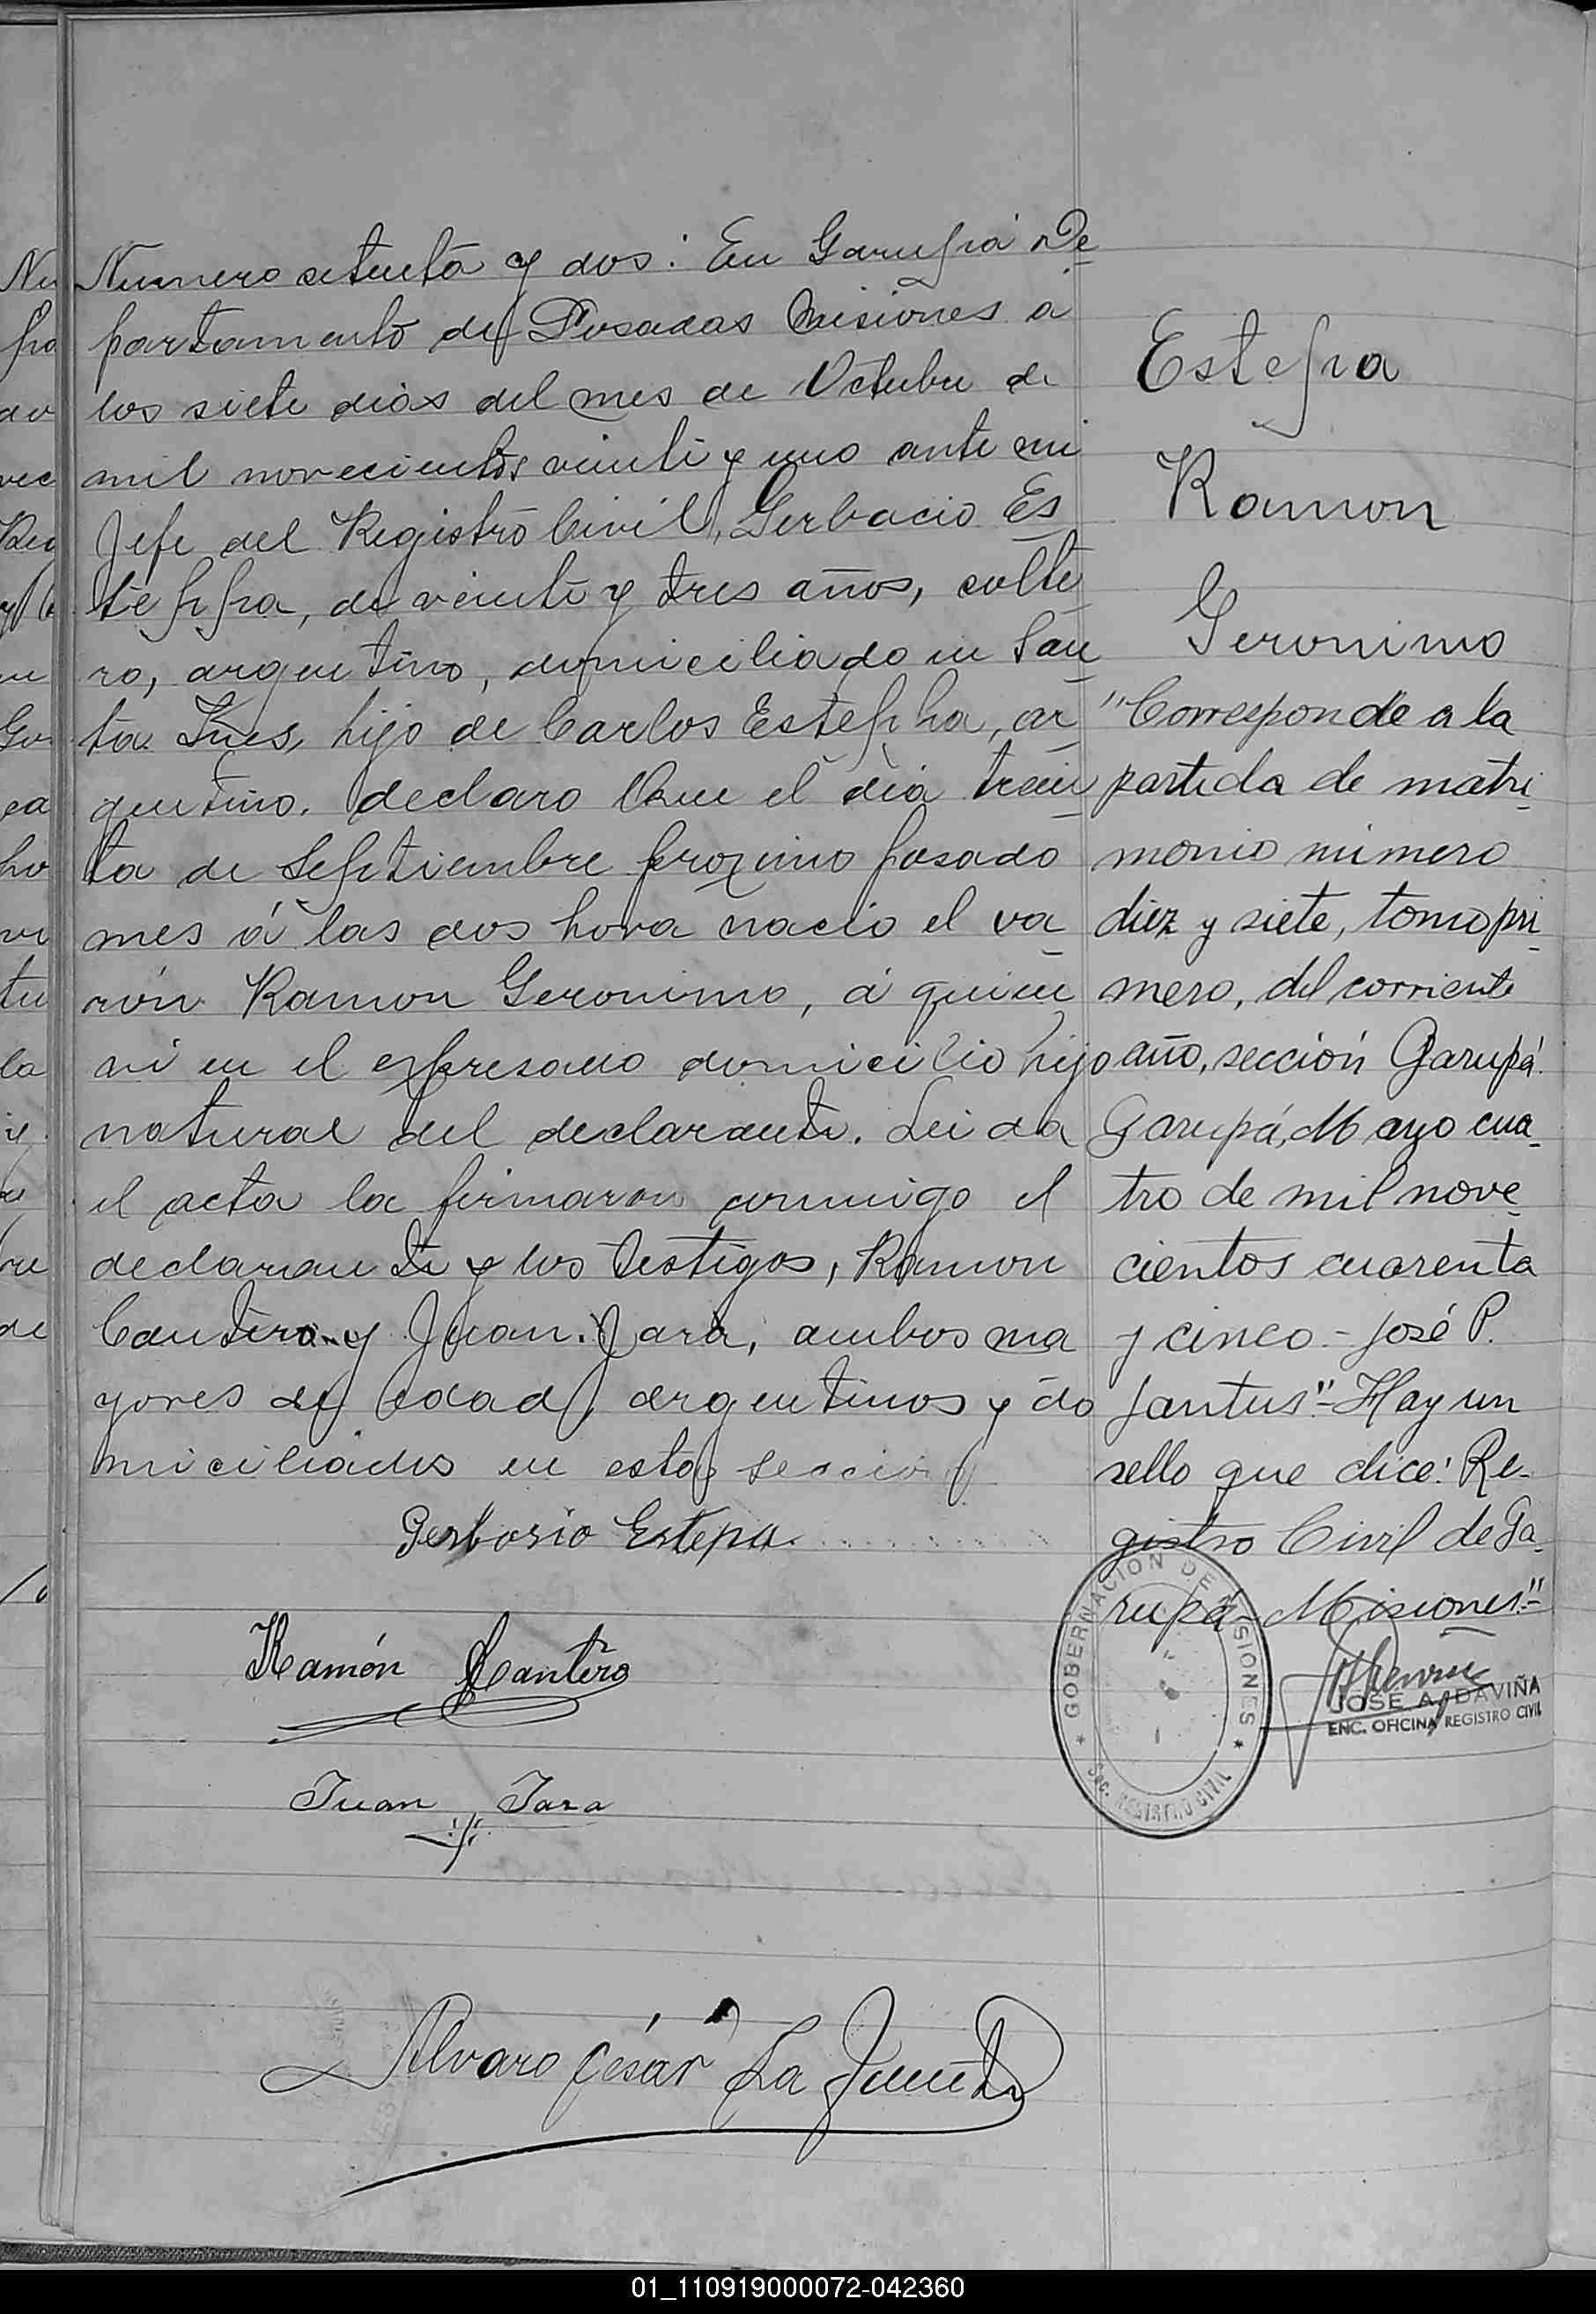 Numero setenta y dos: En Garupá De
partamento de Posadas Misiones a
los siete dias del mes de Octubre de
mil novecientos veinti y uno ante mi
Jefe del Registro Civil, Gerbacio Es
teppa, de veinti y tres años, solte
ro, argentino, domiciliado en San
ta Ines, hijo de Carlos Esteppa, ar
gentino. declaro Que el dia trein
ta de Septiembre proximo pasado
mes á las dos hora nacio el va
rón Ramon Geronimo, á quien
vi en el expresado domicilio hijo
natural del declarante. Leida
el acta la firmaron conmigo el
declarante y los testigos, Ramon
Cantero y Juan Jara, ambos ma
yores de edad, argentinos y do
miciliados en esta sección
Gerbasio Estepa
Ramón Cantero
Juan Jara
Alvaro César La Puente
Estepa
Ramon
Geronimo
"Corresponde a la
partida de matri
monio número
diez y siete, tomo pri
mero, del corriente
año, sección Garupá.
Garupá, Mayo cua
tro de mil nove
cientos cuarenta
y cinco - José P.
Jantus".- Hay un
sello que dice: Re-
gistro Civil de Ga
rupá - Misiones".-
GOBERNACION DE MISIONES
Sec. REGISTRO CIVIL
JOSE A. DAVIÑA
ENC. OFICINA REGISTRO CIVIL
Nu
pa
do
rec
la
tu
de
01_110919000072-042360